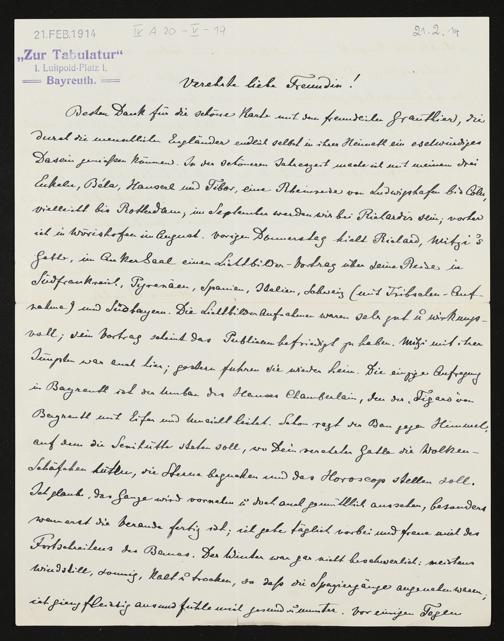 21. FEB. 1914
IV A 20 - V - 19
21.2.14
„Zur Tabulatur“
1. Luitpold-Platz 1.
Bayreuth.
Verehrte liebe Freundin!
Besten Dank für die schöne Karte mit den freundlichen Grauthieren, die
durch die menschlichen Engländer endlich selbst in ihrer Heimath ein eselwürdiges
Dasein genießen können. In der schöneren Jahreszeit mache ich mit meinen drei
Enkeln, Béla, Hanserl und Tibor, eine Rheinreise von Ludwigshafen bis Cöln,
vielleicht bis Rotterdam, im September werden wir bei Richards sein; vorher
ich in Wörishofen im August. Vorigen Donnerstag hielt Richard, Mitzi's
Gatte, im Anker Saal einen Lichtbilder-Vortrag über seine Reise in
Südfrankreich, Pyrenäen, Spanien, Italien, Schweiz (mit Tribschen-Auf-
nahme) und Südbayern. Die Lichtbilder Aufnahmen waren sehr gut u wirkungs-
voll; sein Vortrag scheint das Publicum befriedigt zu haben. Mitzi mit ihrer
Jüngsten war auch hier; gestern fuhren sie wieder heim. Die einzige Aufregung
in Bayreuth ist der Umbau des Hauses Chamberlain, den der „Figaro“ von
Bayreuth mit Eifer und Umsicht leitet. Schon ragt der Bau gegen Himmel,
auf dem die Sennhütte stehen soll, wo Dein verehrter Gatte die Wolken-
Schäfchen hüten, die Sterne begucken und das Horoscop stellen soll.
Ich glaube, das Ganze wird vornehm u doch auch gemüthlich aussehen, besonders
wenn erst die Veranda fertig ist; ich gehe täglich vorbei und freue mich des
Fortschreitens des Baues. Der Winter war gar nicht beschwerlich: meistens
windstill, sonnig, kalt u trocken, so daß die Spaziergänge angenehm waren;
ich gieng fleißig aus und fühle mich gesund u munter. Vor einigen Tagen